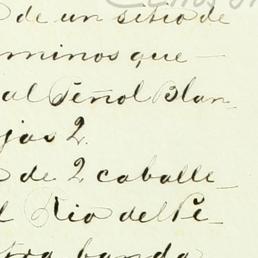 de un sitio de
minos que
al Peñol Blan-
jas 2.
de 2 caballe-
l Rio del Pe-
tra banda